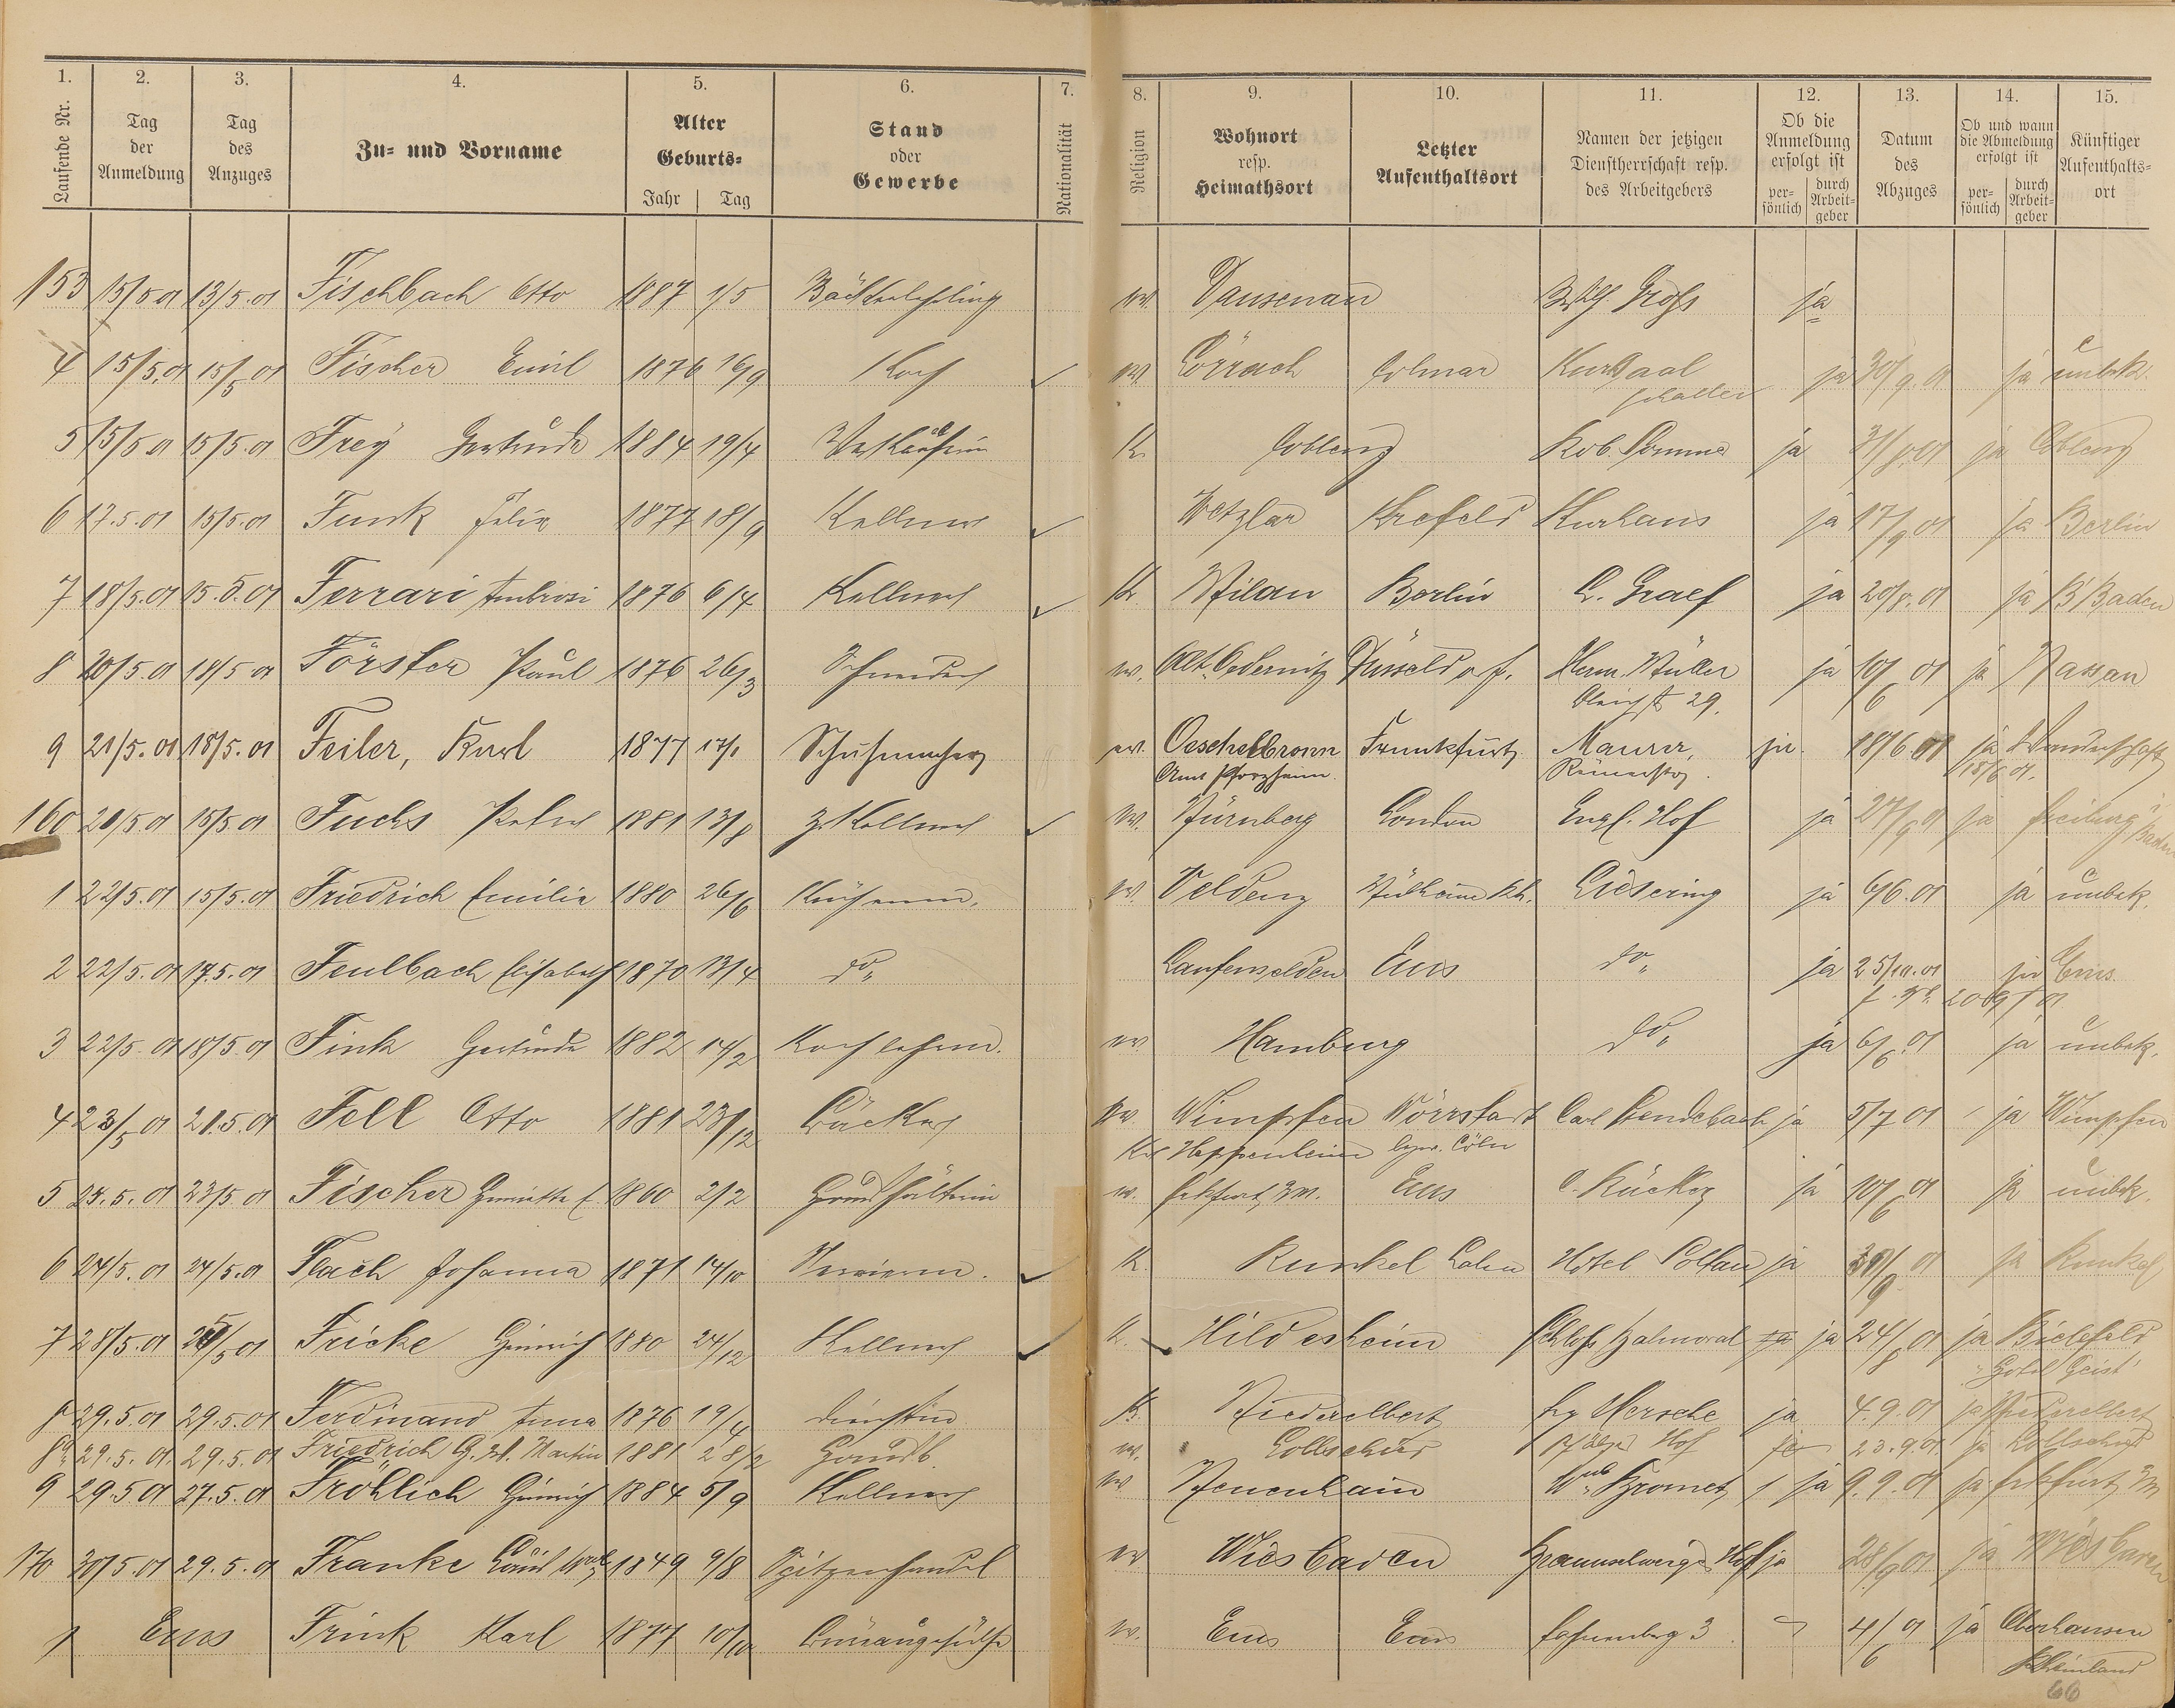 1. 2. 3. 4. 5. 6. 7. 8. 9. 10. 11. 12. 13. 14. 15.
Laufende Nr. Tag der Anmeldung Tag des Anzuges Zu- und Vorname Alter Geburts- Jahr Tag Stand oder Gewerbe Nationalität Religion Wohnort resp. Heimathsort Letzter Aufenthaltsort Namen der jetzigen Dienstherrschaft resp. des Arbeitgebers Ob die Anmeldung erfolgt ist per-sönlich durch Arbeit-geber Datum des Abzuges Ob und wann die Abmeldung erfolgt ist per-sönlich durch Arbeit-geber Künftiger Aufenthalts-ort
153 15/5 01 13/5.01 Fischbach Otto 1887 1/5 Bäckerlehrling ev. Dausenau Groß ja
4 15/5.01 15/5 01 Fischer Emil 1876 16/9 Koch ev. Lörrach Colmar Kursaal ja 30/9.01 ja unbek.
5 15/5 01 15/5.01 Frey Gertrude 1884 19/4 Verkäuferin K. Coblenz Rob. ja 31/8.01 ja Coblenz
6 17.5.01 15/5.01 Funk Felix 1877 18/9 Kellner Wetzlar Krefeld Kurhaus ja 17/9 01 ja Berlin
7 18/5.01 15.5.01 Ferrari Ambrosi 1876 6/4 Kellner K. Milan Berlin L. Graef ja 20/8.01 ja B'Baden
8 20/5.01 18/5 01 Förster Paul 1876 26/3 Schneider ev. Düsseldorf. Herm. Müller ja 10/6 01 ja Nassau
29.
9 21/5.01 18/5.01 Feiler, Karl 1877 17/1 Schuhmacher ev. Oeschelbronn Frankfurt Maurer, ja 18/6 01 ja Wanderschaft
Amt Pforzheim. Römerstr. 18/6 01.
160 21/5.01 15/5 01 Fuchs Peter 1881 13/8 Z. Kellner ev. Nürnberg London Engl. Hof ja 27/9 01 ja Freiburg i/Baden
1 22/5.01 15/5.01 Friedrich Emilie 1880 26/6 ev. Veldenz Mülheim Rh. ja 6/6.01 ja unbek.
2 22/5.01 17.5.01 Feulbach Elisabeth 1870 13/4 do „ Laufenselden Ems do „ ja 25/10.01 ja Ems.
3 22/5.01 18/5 01 Fink Gertrude 1882 14/2 Kochlehrm. ev. Hamburg do „ ja 6/6.01 ja unbek.
4 23/5 01 21.5.01 Fell Otto 1881 23/12 Bäcker ev. Wimpfen Wörrstadt Carl ja 5/7 01 ja Wimpfen
Heppenheim bezw. Cöln
5 25.5.01 23/5 01 Fischer Henriette 1860 2/2 Haushälterin ev. Frkfurt, a/M. Ems C. Rücker ja 10/6 01 ja unbek.
6 24/5.01 24/5.01 Flach Johanna 1871 14/10 K. Runkel Lahn Hotel ja 30/9 01 ja Runkel
7 28/5.01 25/5 01 Fricke Heinrich 1880 24/12 Kellner K. Hildesheim Schloß Balmoral ja 24/8 01 ja Bielefeld
„Hotel Geist"
8 29.5.01 29.5.01 Ferdinand Anna 1876 19/4 Dienstm. K. Niederelbert Hersche ja 4.9.01 ja Niederelbert
8a 29.5.01. 29.5.01 Friedrich G. W. Martin 1881 28/2 Hausb. ev. Pfälzer Hof ja 23.9.01 ja
9 29.5 01 27.5.01 Fröhlich Heinrich 1884 5/9 Kellner ev. Neuenhain ja 9.9.01 ja Frkfurt a/M
170 30/5.01 29.5.01 Franke 1849 9/8 Spitzenhandel ev Wiesbaden Braunschweiger Hof ja 28/9 01 ja Wiesbaden
1 Ems Frink Karl 1877 10/10 Büreaugehülfe ev. Ems Ems 3 4/6 01 ja Oberhausen
Rheinland
66